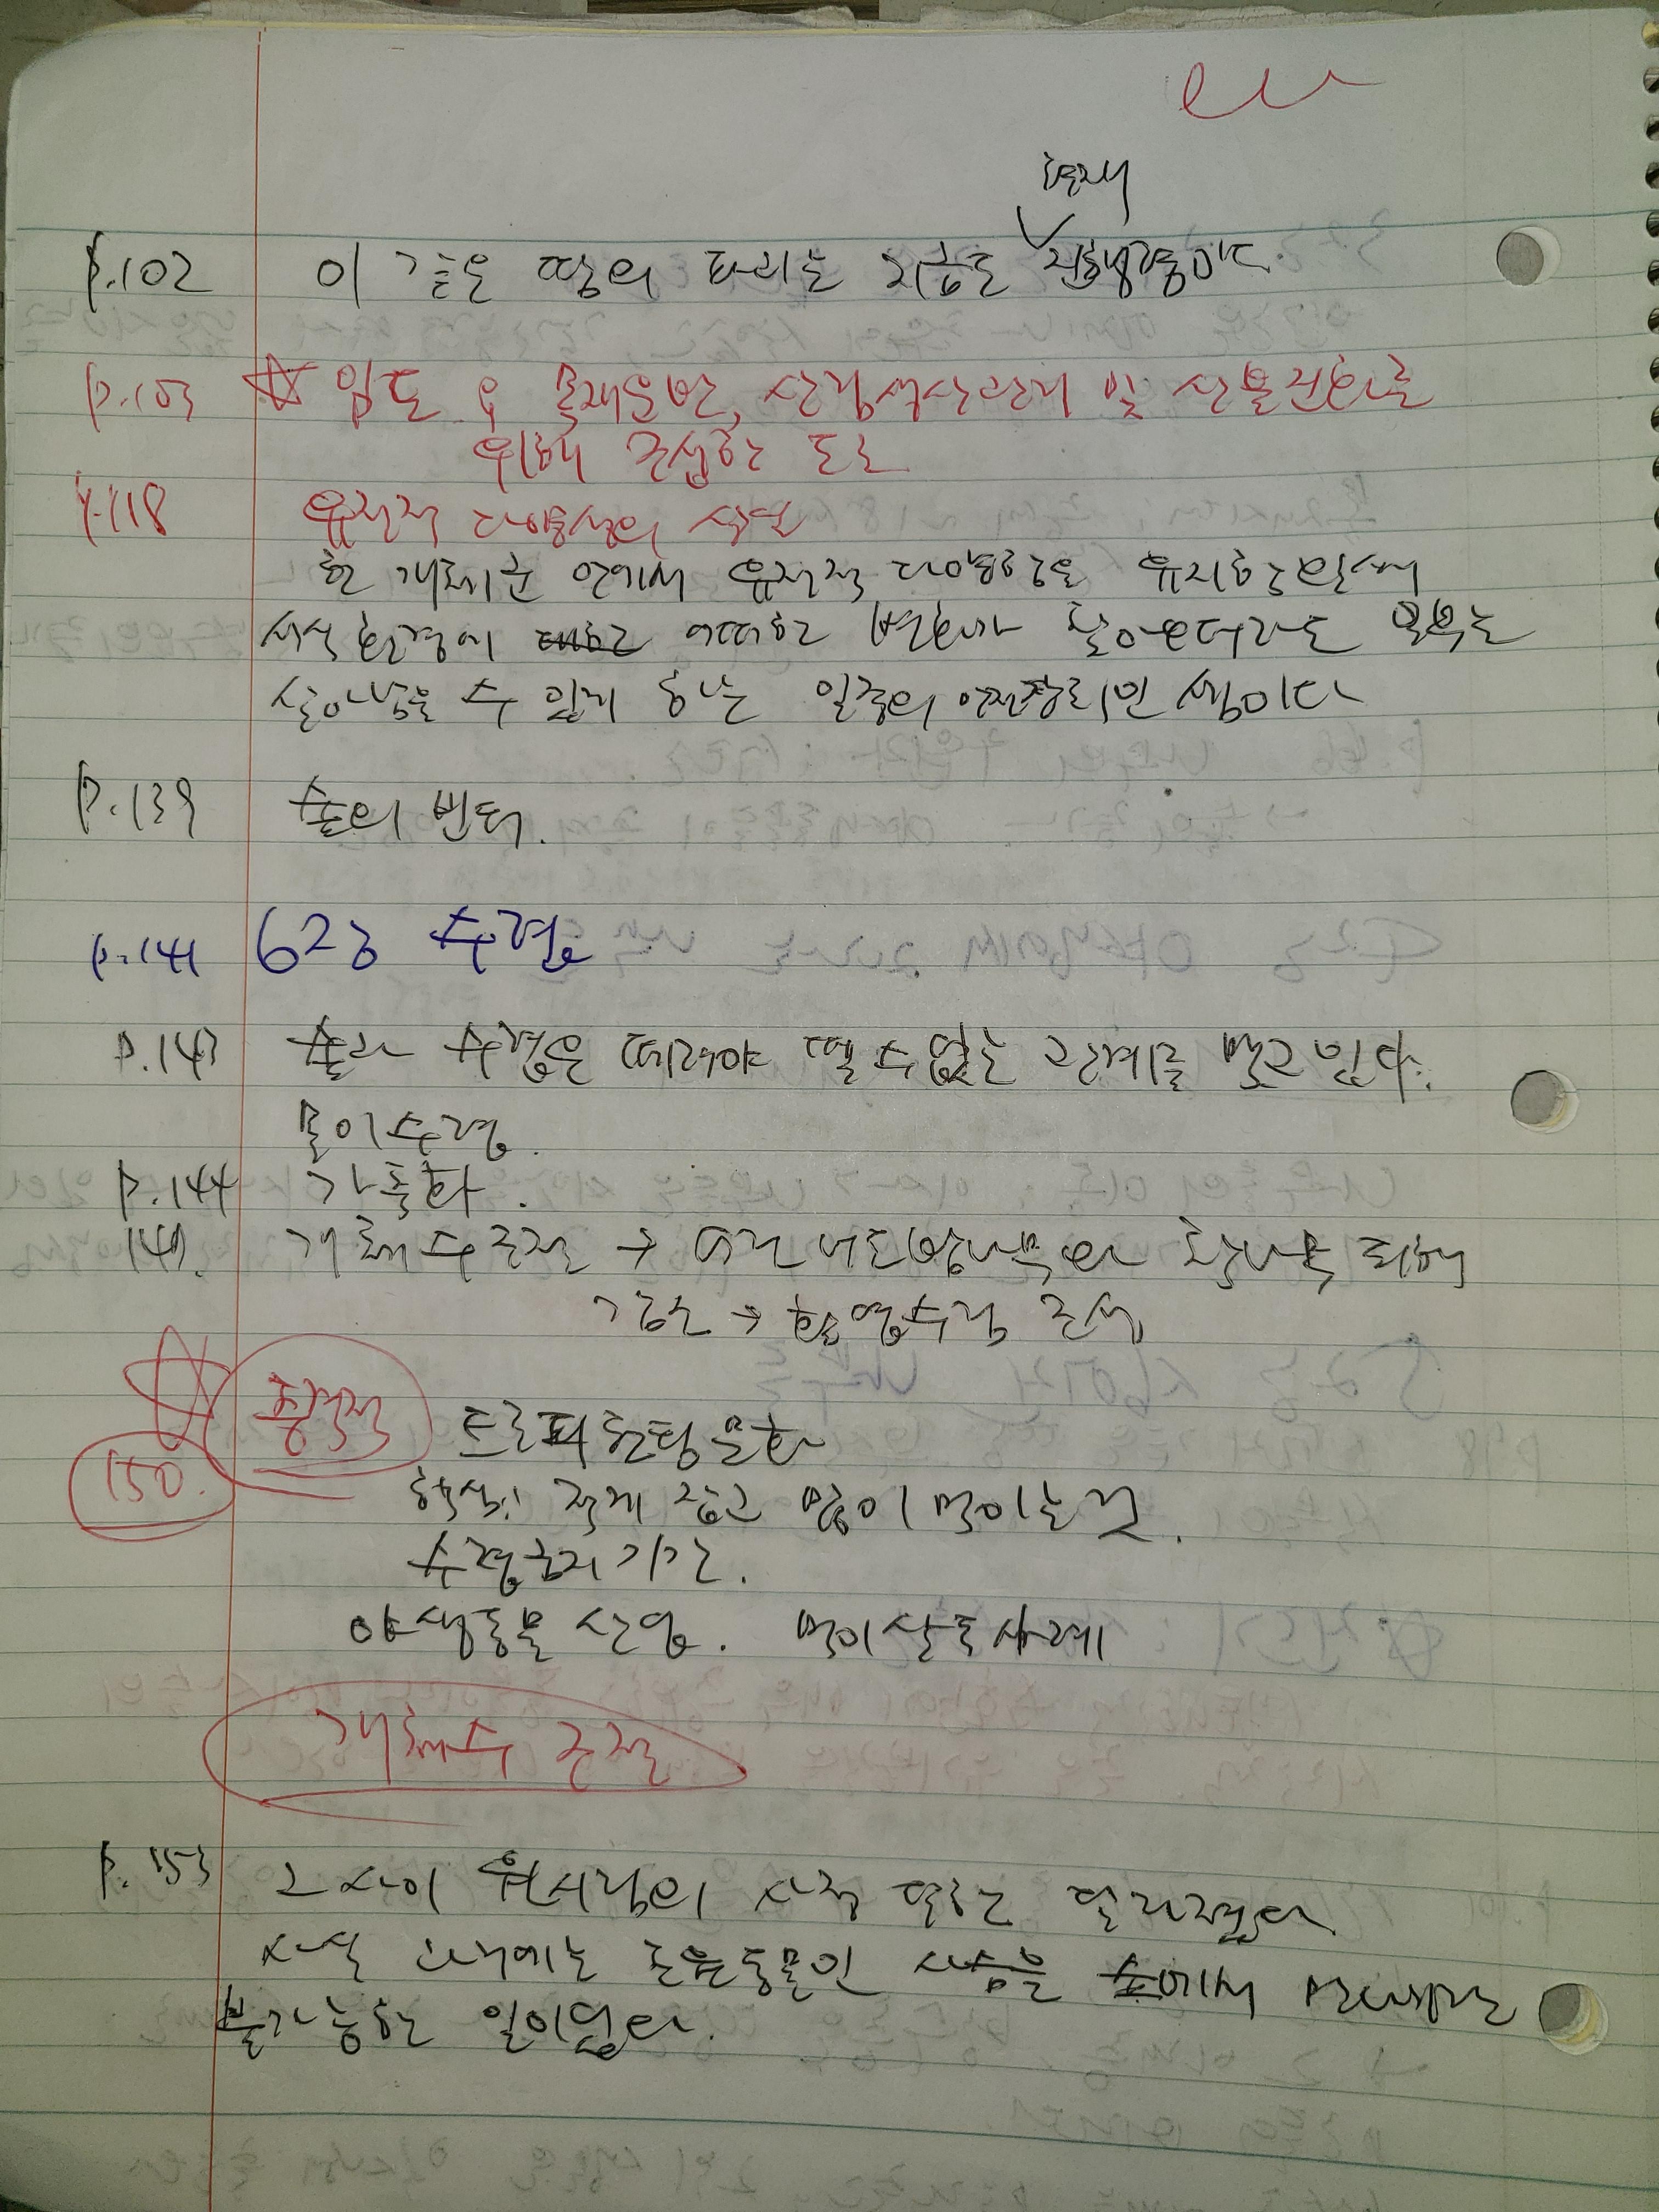 현재
p.102 이 같은 땅의 파괴는 지금도 진행중이다.
p.103 ☆ 임도 : 목재운반, 산림생산관리 및 산불진화를
위해 조성한 도로
p.118 유전적 다양성의 상실
한 개체군 안에서 유전적 다양함을 유지하는 일은
서식환경에 어떠한 변화가 찾아오더라도 일부는
살아남을 수 있게 하는 일종의 안전장치인 셈이다
p.139 숲의 빈터.
p.141 6장 수렵
p.143 숲과 수렵은 떼려야 뗄 수 없는 관계를 맺고 있다.
몰이수렵.
p.144 가축화.
149. 개체수조절 → 어린 너도밤나무와 참나무 피해
감소 → 혼영수림 조성
150. 충격적 트로피헌팅문화
핵심! 적게 잡고 많이 먹이는 것.
수렵금지기간.
야생동물 산업. 먹이살포사례
개체수 조절
p.153 그 사이 원시림의 사정 또한 달라졌다
사실 고대에는 초원동물인 사슴을 숲에서
불가능한 일이었다.